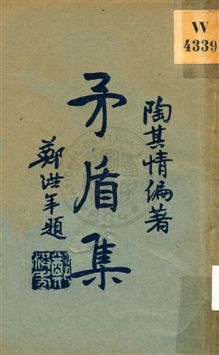 W
4339
陶其情編著
矛盾集
鄭洪年題